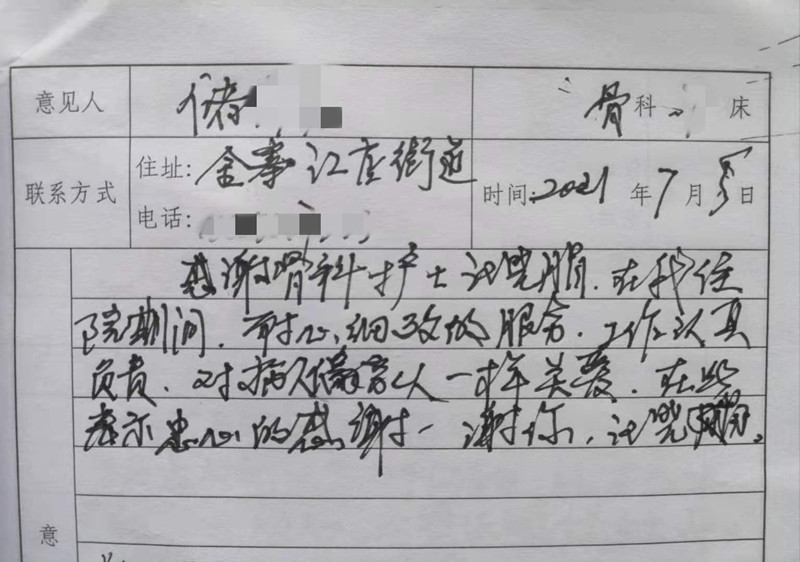 意见人 储 骨科 床
联系方式 住址: 金寨江店街道
电话: 时间: 2021年7月5日
感谢骨科护士汪晓娟.在我住
院期间.耐心细致的服务.工作认真
负责.对病人像亲人一样关爱.在此
表示忠心的感谢!谢谢你,汪晓娟。
意